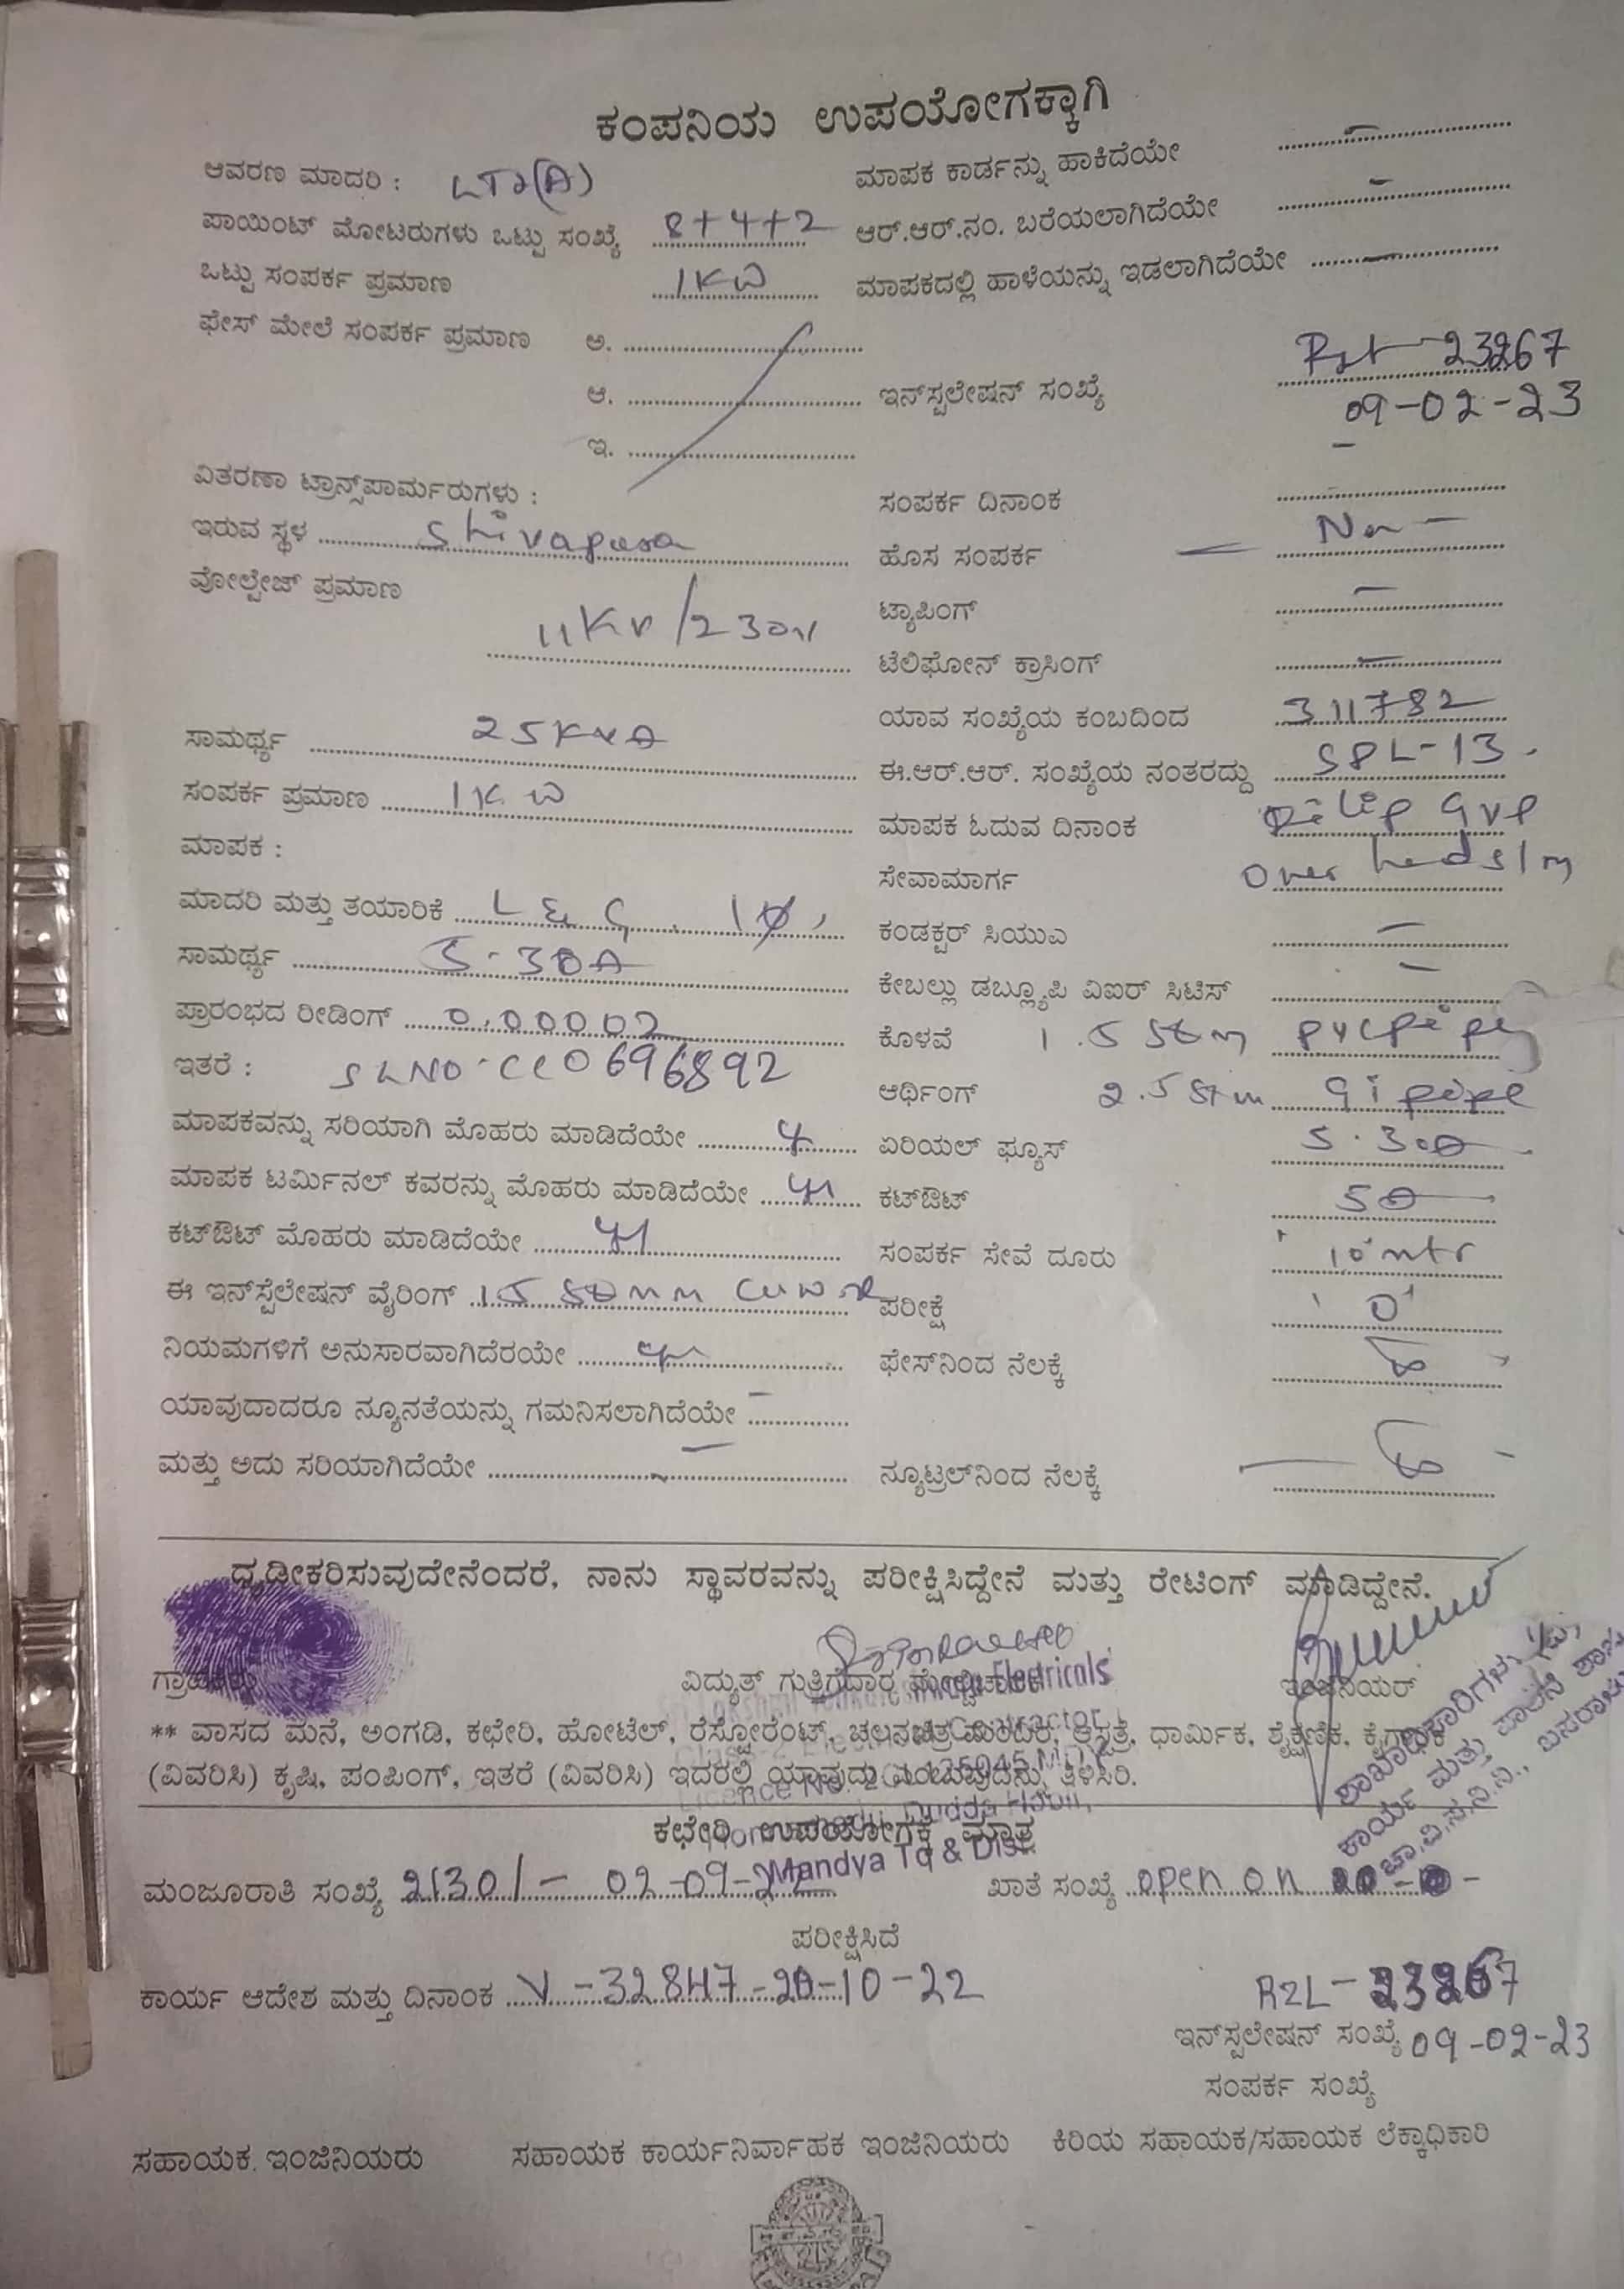 ಕಂಪನಿಯ ಉಪಯೋಗಕ್ಕಾಗಿ
ಆವರಣ ಮಾದರಿ : LT2(A)
ಮಾಪಕ ಕಾರ್ಡನ್ನು ಹಾಕಿದೆಯೇ –
ಪಾಯಿಂಟ್ ಮೋಟರುಗಳು ಒಟ್ಟು ಸಂಖ್ಯೆ 8+4+2
ಆರ್.ಆರ್.ನಂ. ಬರೆಯಲಾಗಿದೆಯೇ –
ಒಟ್ಟು ಸಂಪರ್ಕ ಪ್ರಮಾಣ 1KW
ಮಾಪಕದಲ್ಲಿ ಹಾಳೆಯನ್ನು ಇಡಲಾಗಿದೆಯೇ –
ಫೇಸ್ ಮೇಲೆ ಸಂಪರ್ಕ ಪ್ರಮಾಣ ಅ.
ಆ.
ಇ.
ಇನ್‌ಸ್ಪಲೇಷನ್ ಸಂಖ್ಯೆ 23267
09-02-23
ವಿತರಣಾ ಟ್ರಾನ್ಸ್‌ಪಾರ್ಮರುಗಳು :
ಸಂಪರ್ಕ ದಿನಾಂಕ
ಇರುವ ಸ್ಥಳ Shivapura
ಹೊಸ ಸಂಪರ್ಕ
ವೋಲ್ಟೇಜ್ ಪ್ರಮಾಣ 11KV/230V
ಟ್ಯಾಪಿಂಗ್ –
ಟೆಲಿಫೋನ್ ಕ್ರಾಸಿಂಗ್ –
ಯಾವ ಸಂಖ್ಯೆಯ ಕಂಬದಿಂದ 311782
ಸಾಮರ್ಥ್ಯ 25KVA
ಈ.ಆರ್.ಆರ್. ಸಂಖ್ಯೆಯ ನಂತರದ್ದು SPL-13
ಸಂಪರ್ಕ ಪ್ರಮಾಣ 1KW
ಮಾಪಕ ಓದುವ ದಿನಾಂಕ Dilip GVP
ಮಾಪಕ :
ಸೇವಾಮಾರ್ಗ Over head
ಮಾದರಿ ಮತ್ತು ತಯಾರಿಕೆ L&G, 1Ø,
ಕಂಡಕ್ಟರ್ ಸಿಯುಎ –
ಸಾಮರ್ಥ್ಯ 5-30A
ಕೇಬಲ್ಲು ಡಬ್ಲ್ಯೂಪಿ ವಿಐರ್ ಸಿಟಿಸ್ –
ಪ್ರಾರಂಭದ ರೀಡಿಂಗ್ 0,00002
ಕೊಳವೆ 1.5 pvc pipe
ಇತರೆ : SLNO-CC0696892
ಆರ್ಥಿಂಗ್ 2.5 Gi pipe
ಮಾಪಕವನ್ನು ಸರಿಯಾಗಿ ಮೊಹರು ಮಾಡಿದೆಯೇ
ಏರಿಯಲ್ ಫ್ಯೂಸ್ 5-30A
ಮಾಪಕ ಟರ್ಮಿನಲ್ ಕವರನ್ನು ಮೊಹರು ಮಾಡಿದೆಯೇ
ಕಟ್‌ಔಟ್ 5A
ಕಟ್‌ಔಟ್ ಮೊಹರು ಮಾಡಿದೆಯೇ
ಸಂಪರ್ಕ ಸೇವೆ ದೂರು 10 mtr
ಈ ಇನ್‌ಸ್ಪೆಲೇಷನ್ ವೈರಿಂಗ್
ಪರೀಕ್ಷೆ '0'
ನಿಯಮಗಳಿಗೆ ಅನುಸಾರವಾಗಿದೆರಯೇ
ಫೇಸ್‌ನಿಂದ ನೆಲಕ್ಕೆ
ಯಾವುದಾದರೂ ನ್ಯೂನತೆಯನ್ನು ಗಮನಿಸಲಾಗಿದೆಯೇ –
ಮತ್ತು ಅದು ಸರಿಯಾಗಿದೆಯೇ –
ನ್ಯೂಟ್ರಲ್‌ನಿಂದ ನೆಲಕ್ಕೆ
ಧೃಡೀಕರಿಸುವುದೇನೆಂದರೆ, ನಾನು ಸ್ಥಾವರವನ್ನು ಪರೀಕ್ಷಿಸಿದ್ದೇನೆ ಮತ್ತು ರೇಟಿಂಗ್ ಮಾಡಿದ್ದೇನೆ.
ಗ್ರಾಹಕರು ವಿದ್ಯುತ್ ಗುತ್ತಿಗೆದಾರ ಇಂಜಿನಿಯರ್
Electricals
** ವಾಸದ ಮನೆ, ಅಂಗಡಿ, ಕಛೇರಿ, ಹೋಟೆಲ್, ರೆಸ್ಟೋರೆಂಟ್, ಚಲನಚಿತ್ರ ಮಂದಿರ, ಆಸ್ಪತ್ರೆ, ಧಾರ್ಮಿಕ, ಶೈಕ್ಷಣಿಕ, ಕೈಗಾರಿಕೆ
(ವಿವರಿಸಿ) ಕೃಷಿ, ಪಂಪಿಂಗ್, ಇತರೆ (ವಿವರಿಸಿ) ಇದರಲ್ಲಿ ಯಾವುದು ಎಂಬುವುದನ್ನು ತಿಳಿಸಿರಿ.
ಕಛೇರಿ ಉಪಯೋಗಕ್ಕೆ ಮಾತ್ರ
Mandya Tq & Dist.
ಮಂಜೂರಾತಿ ಸಂಖ್ಯೆ 21301/- 02-09-22
ಖಾತೆ ಸಂಖ್ಯೆ open on
ಪರೀಕ್ಷಿಸಿದೆ
ಕಾರ್ಯ ಆದೇಶ ಮತ್ತು ದಿನಾಂಕ V-32847-20-10-22
23267
ಇನ್‌ಸ್ಪಲೇಷನ್ ಸಂಖ್ಯೆ 09-02-23
ಸಂಪರ್ಕ ಸಂಖ್ಯೆ
ಸಹಾಯಕ ಇಂಜಿನಿಯರು ಸಹಾಯಕ ಕಾರ್ಯನಿರ್ವಾಹಕ ಇಂಜಿನಿಯರು ಕಿರಿಯ ಸಹಾಯಕ/ಸಹಾಯಕ ಲೆಕ್ಕಾಧಿಕಾರಿ